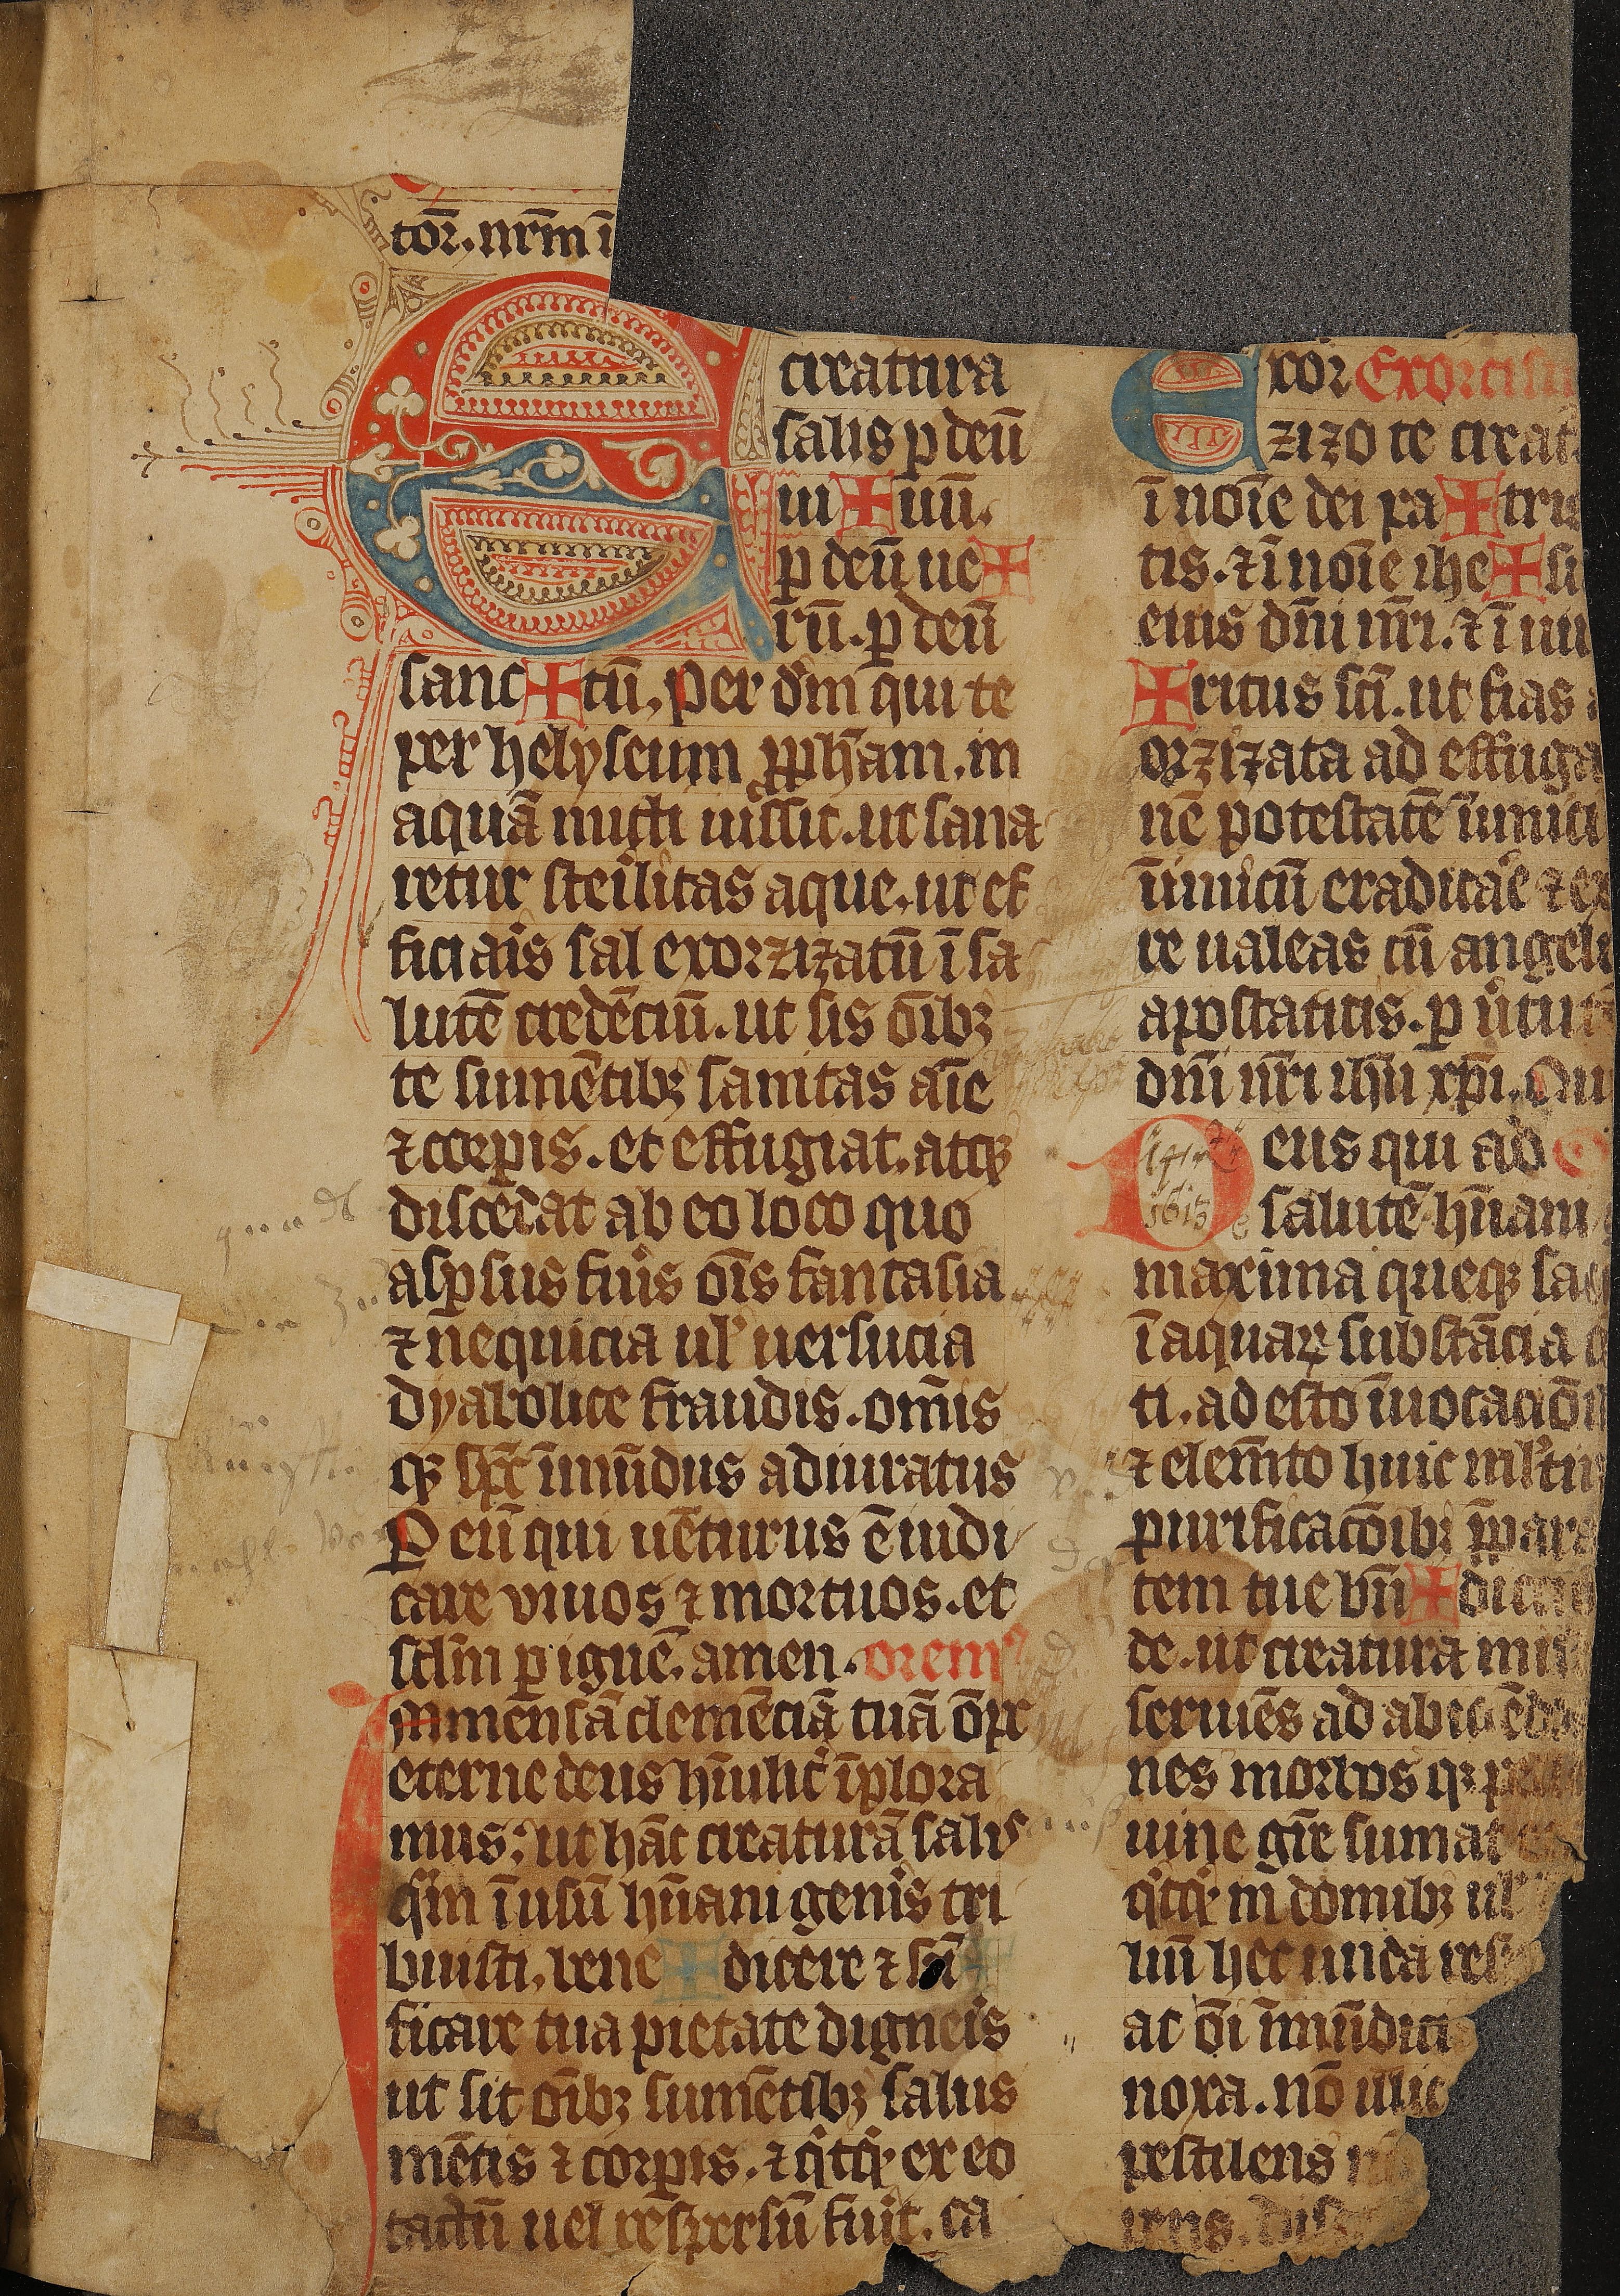 toꝛ. nr̄m ī
creatura
salis p̲ deū
ui✠uū.
p̲ deū ue✠
rū. p̲ deū
sanc✠tū. Per dm̄ qui te
per helyseum ꝓph̄am. in
aquā micti iussit. ut sana
retur ste͛ilitas aque. ut ef
ficia͛is sal exoꝛzizatū ī sa
lutē credēciū. ut sis oīb⁊
te sumētib⁊ sanitas aīe
⁊ coꝛp̲is. et effugiat. atqꝫ
discedat ab eo loco quo
asp̲sus fu͛is oīs fantasia
⁊ neq̄uicia ul᷎ uersucia
dyabolice fraudis. omīs
qꝫ sp̄c īmūdus adiuratus
P̲ eū qui uēturus ē iudi
care viuos ⁊ moꝛtuos. et
sclm̄ p̲ ignē. amen. oꝛemꝰ
Immēnsā clemēciā tuā op̄c
eterne deus hūilit͛ īploꝛa
mus: ut hāc creaturā salis
q̄m ī usū hūani gen͛is tri
buisti. bene✠dicere ⁊ sc̄i✠
ficare tua pietate digne͛is
ut sit oīb⁊ sumētib⁊ salus
mētis ⁊ coꝛp̲is. ⁊ q͛tqͥ ex eo
tactū uel resp̄ersū fu͛it. ca
xoꝛ Exoꝛcis
zizo te creat
ī noīe dei pa✠tris
tis. ⁊ ī noīe ihe✠su
eius dn̄i nr̄i. ⁊ ī uir
✠ritus sc̄i. ut fias
oꝛzizata ad effuga
nē potestatē īimici
īimicū eradica͛e ⁊ ex
re ualeas cū angeli
apostaticis. p̲ u͛tut
dn̄i nr̄i ih̄u xp̄i. Qui
Deus qui ad
1615
salutē hūani
maxima queqꝫ sac
ī aquaꝝ substācia
ti. ad esto īuocacio
⁊ elemēto huic ml̄tim
purificacōib⁊ p̄para
tem tue bn̄✠dicc
de. ut creatura mi
seruiēs ad abiciēdo
nes moꝛbos qꝫ
uine gr̄e sumat
q͛tqͥ in domib⁊ ul᷎
liū hec unda res
ac oī īmūdici
noxa. nō illic
pestilens